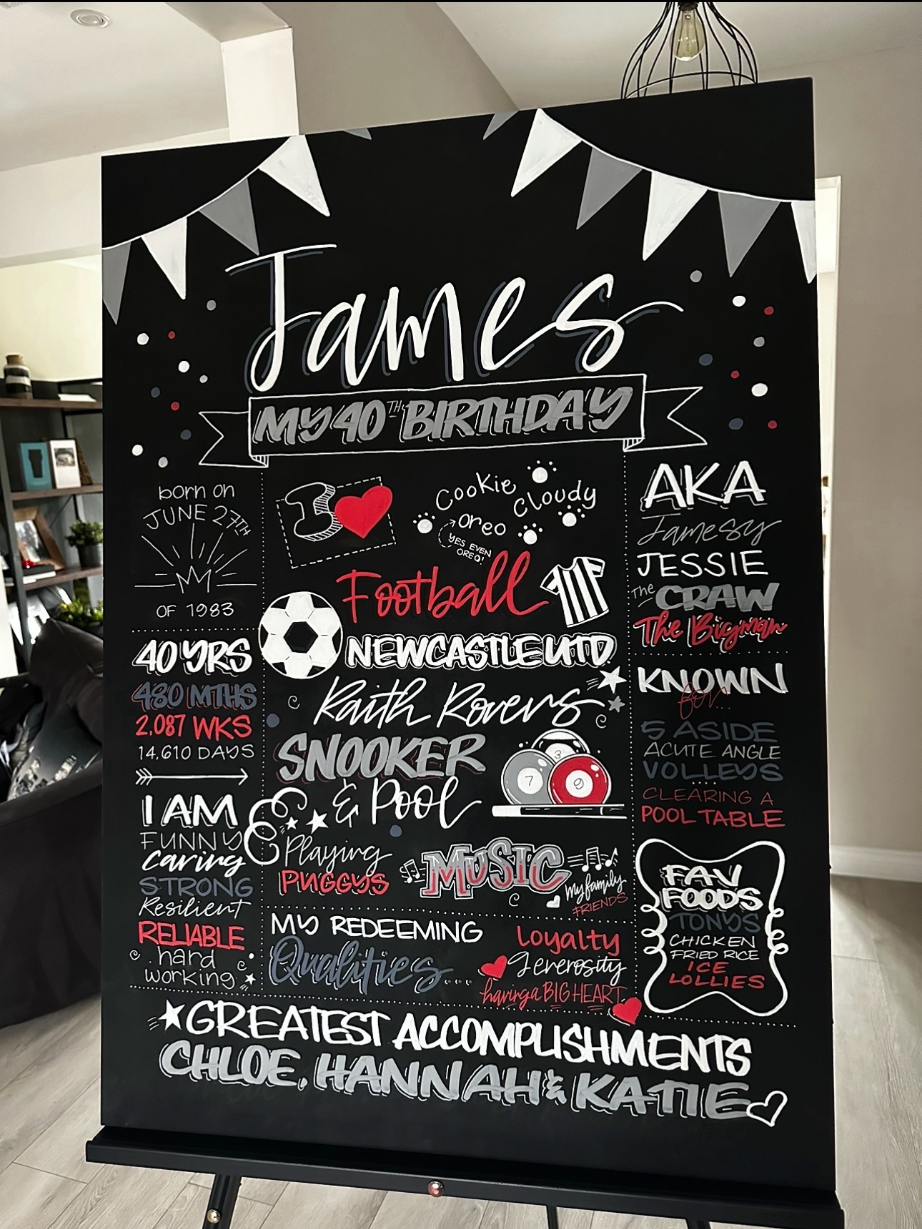 James
MY 40TH BIRTHDAY
born on
JUNE 27TH
OF 1983
40 YRS
480 MTHS
2,087 WKS
14,610 DAYS
I AM
FUNNY
caring
STRONG
Resilient
RELIABLE
hard
working
I
Cookie
Cloudy
oreo
YES EVEN
OREO!
Football
NEWCASTLE UTD
Raith Rovers
SNOOKER
& Pool
7
3
9
& Playing
PUGGYS
MUSIC
My family
FRIENDS
MY REDEEMING
Qualities...
Loyalty
Generosity
having a BIG HEART
AKA
Jamesy
JESSIE
The CRAW
The Bigman
KNOWN
for...
5 ASIDE
ACUTE ANGLE
VOLLEYS
CLEARING A
POOL TABLE
FAV
FOODS
TONYS
CHICKEN
FRIED RICE
ICE
LOLLIES
GREATEST ACCOMPLISHMENTS
CHLOE, HANNAH & KATIE